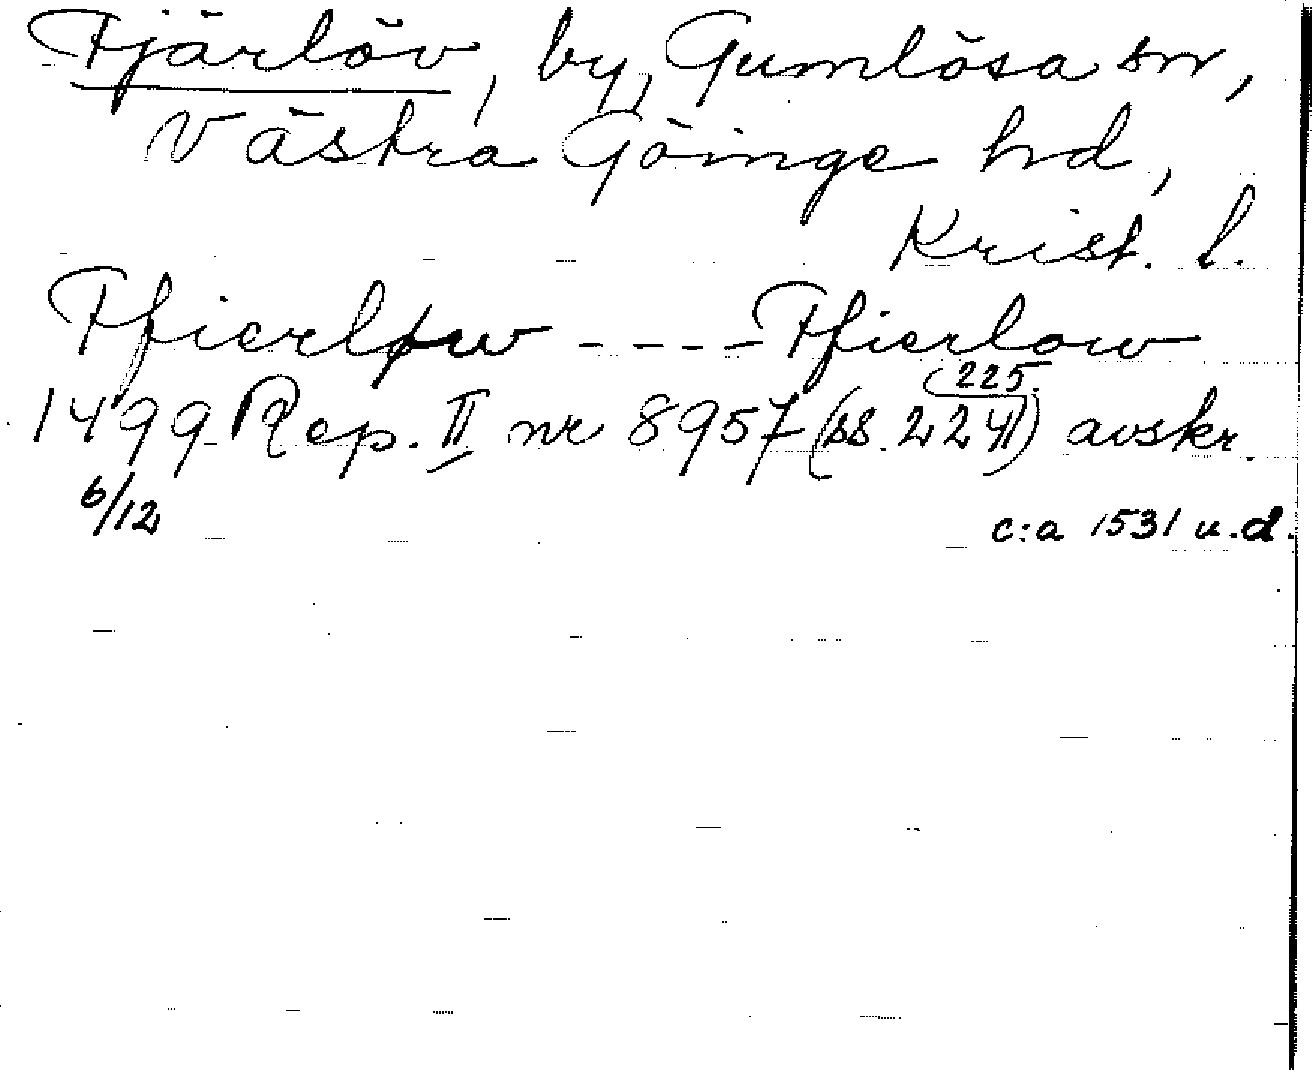 Fjärlöv, by, Gumlösa sn,
Västra Göinge hd,
Krist. l.
Ffierløw - - - - Ffierlow
225.
1499 Rep. II nr 8957 (ss. 224) avskr.
6/12 c:a 1531 u.d.